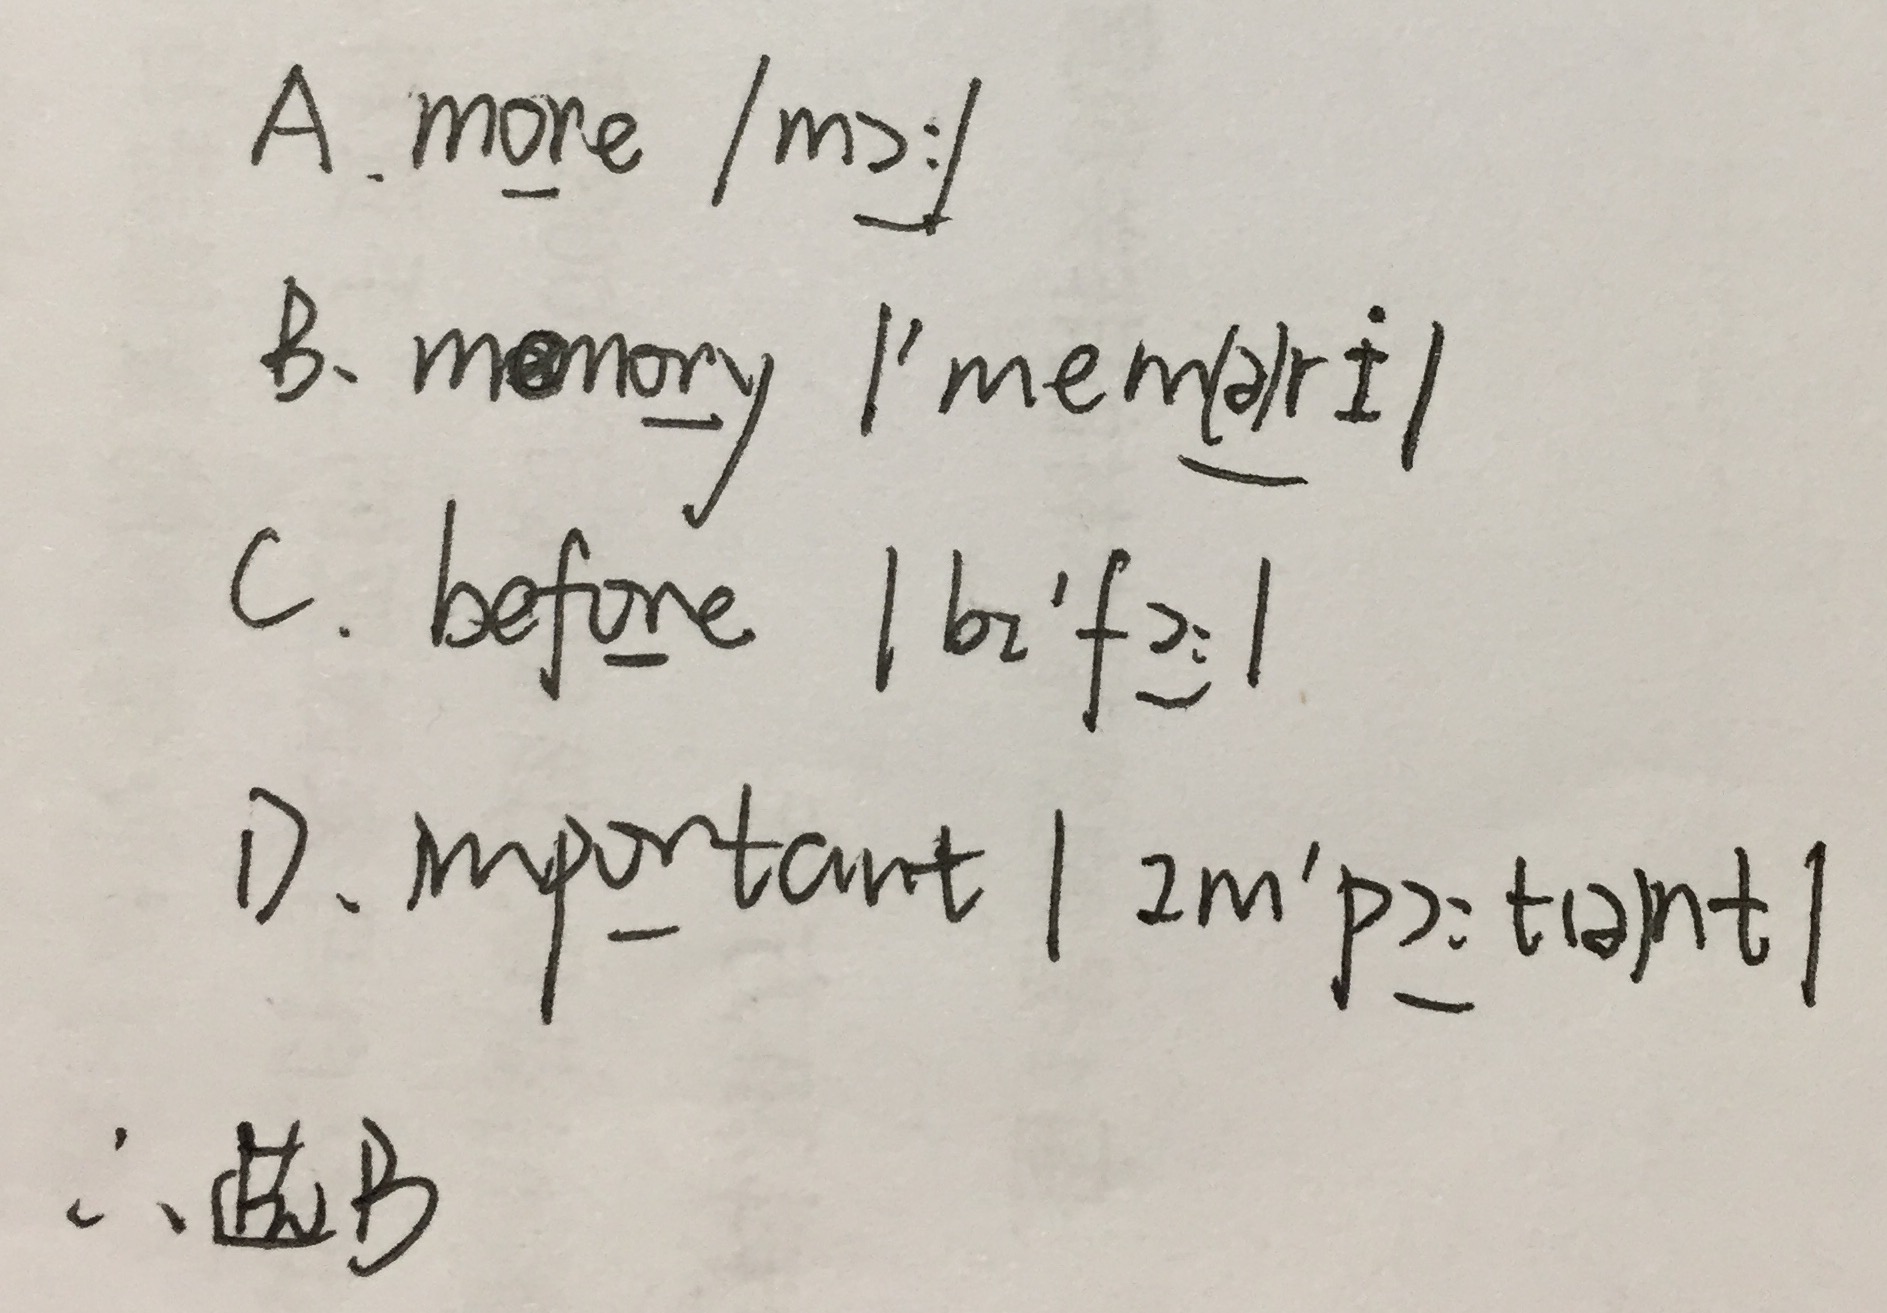 A. more /mɔ:/
B. memory /'mem(ə)rɪ/
C. before /bɪ'fɔ:/
D. important /ɪm'pɔ:t(ə)nt/
∴ 选B